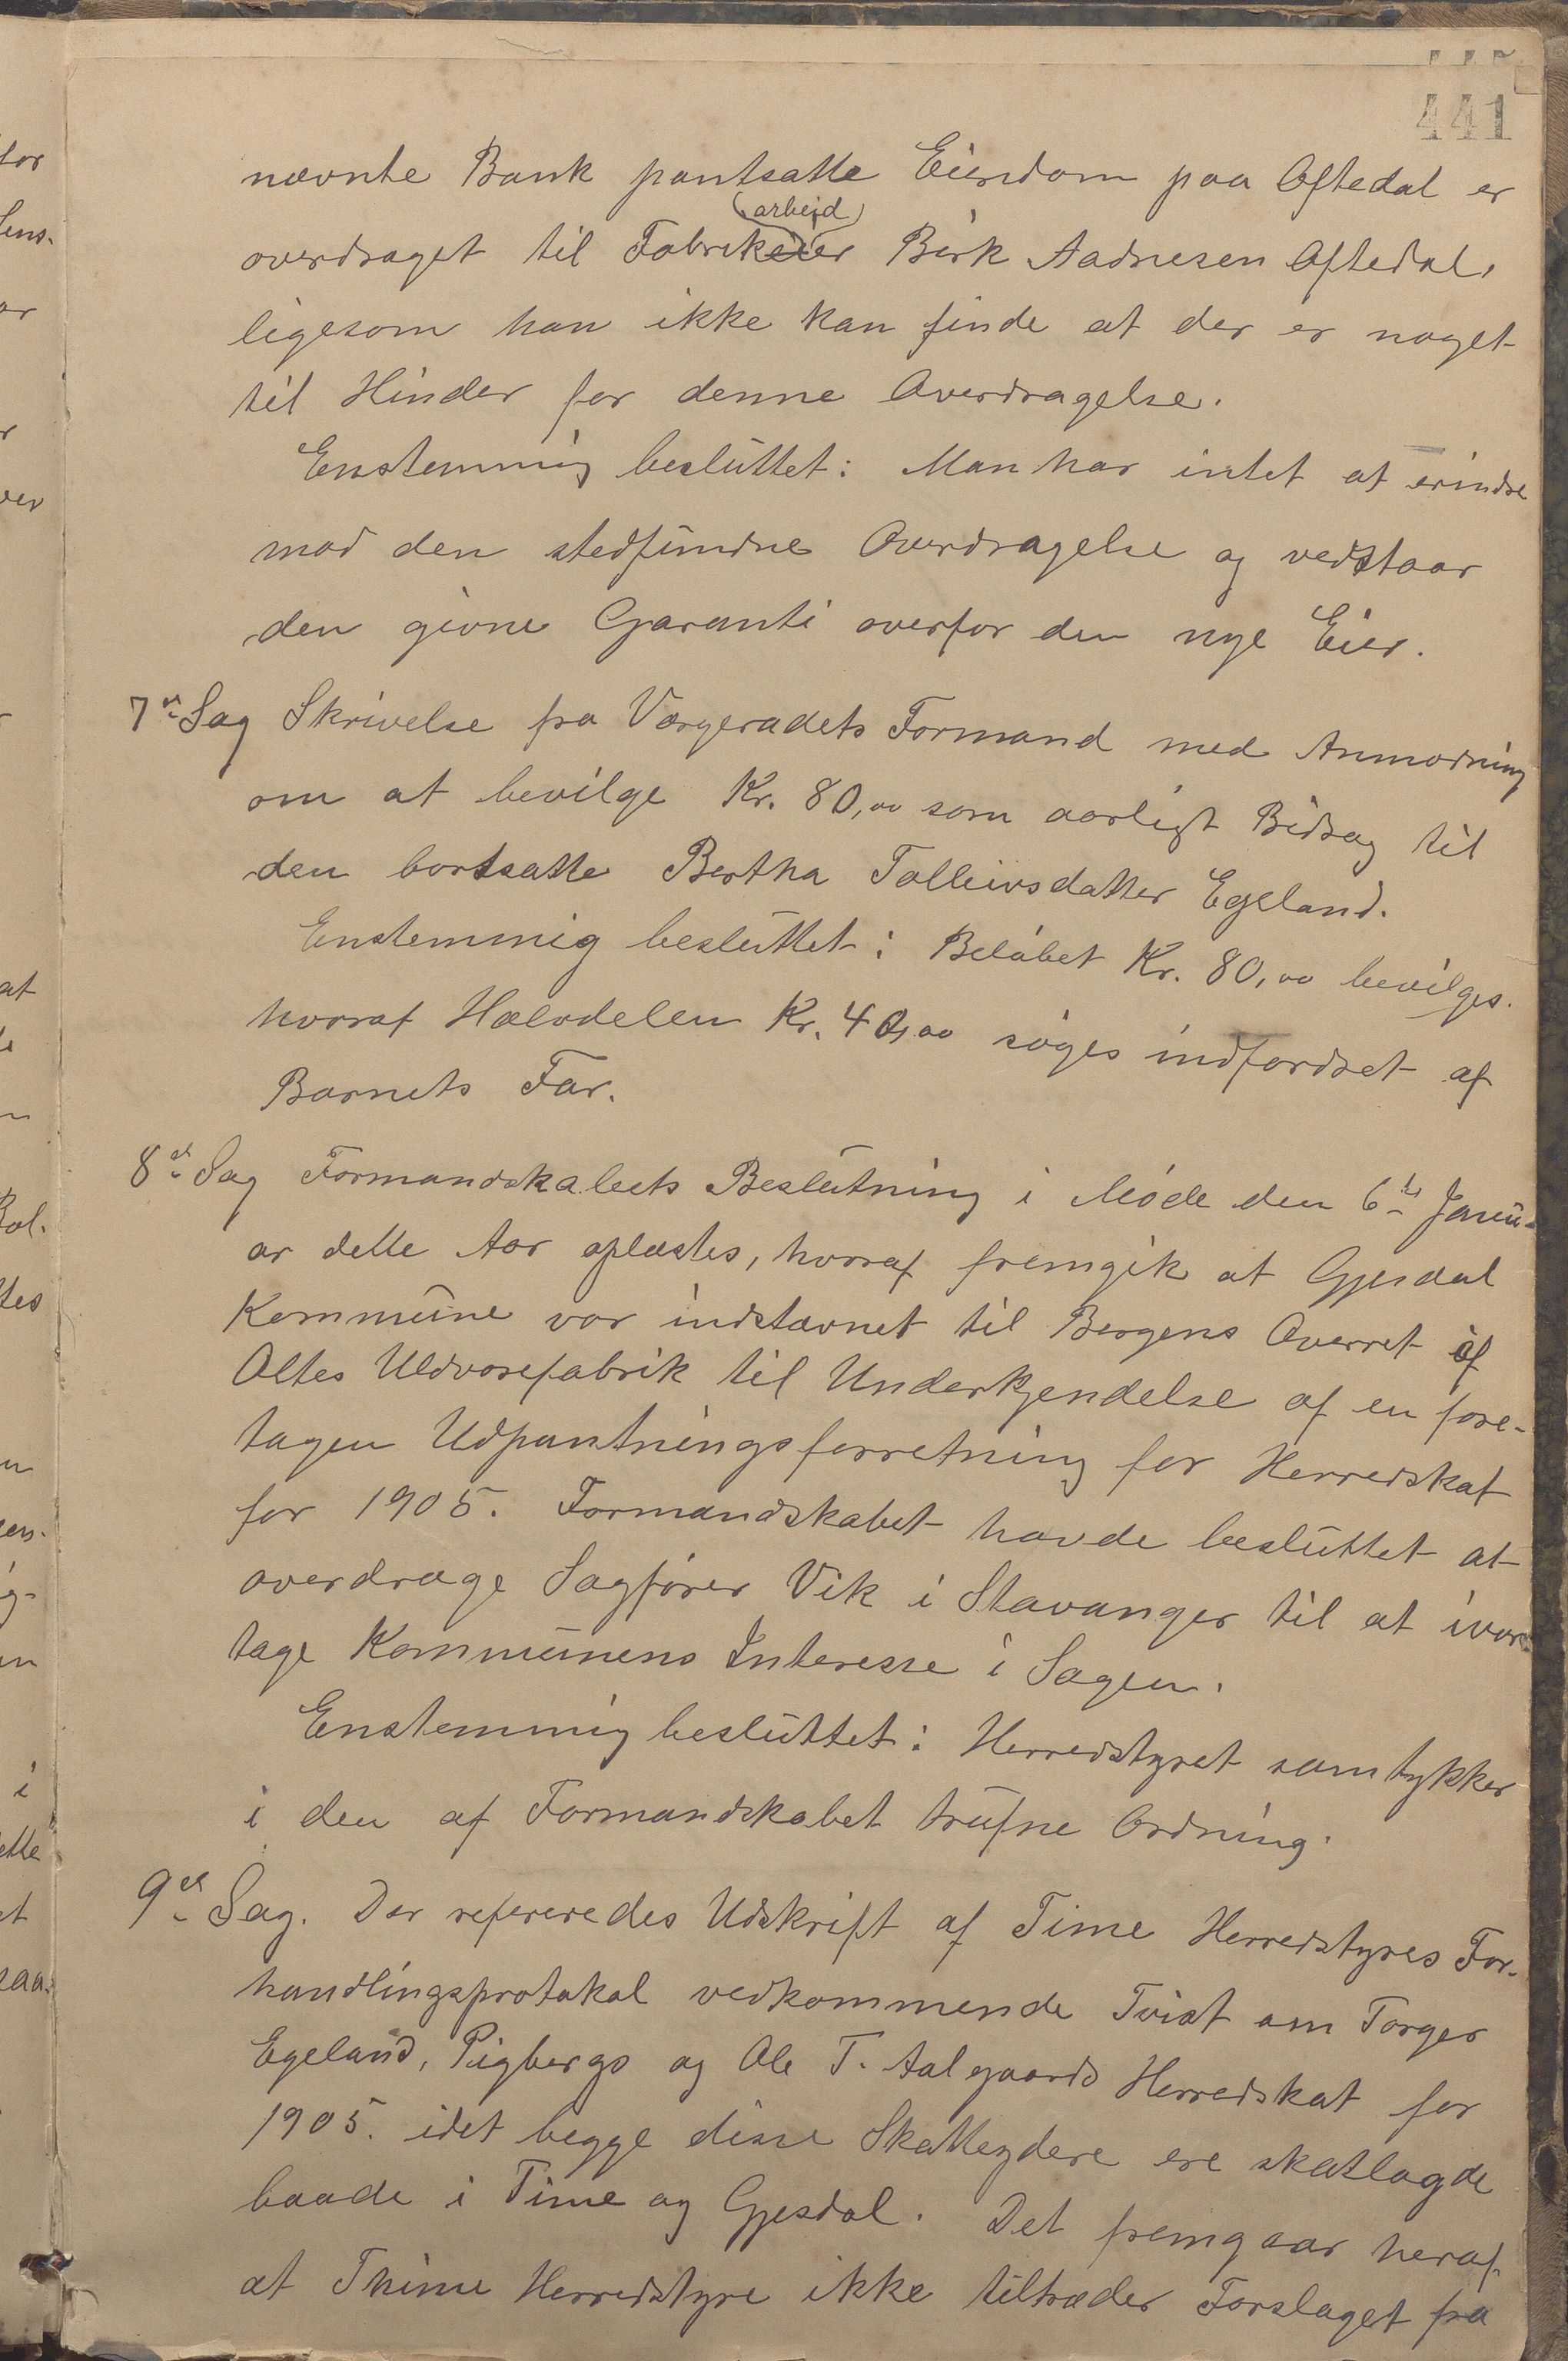 441
nævnte Bank pantsatte Eiendom paa Oftedal er
(arbejd)
overdraget til Fabrikeier Birk Aadnesen Oftedal,
ligesom han ikke kan finde at der er noget
til Hinder for denne Overdragelse.
Enstemmig besluttet: Man har intet at erindre
mod den stedfundne Overdragelse og vedstaar
den givne Garanti overfor den nye Eier.
7de Sag Skrivelse fra Værgeradets Formand med Anmodning
om at bevilge Kr. 80,00 som aarligt Bidrag til
den bortsatte Bertha Tolleivsdatter Egeland.
Enstemmig besluttet: Beløbet Kr. 80,00 bevilges.
hvoraf Halvdelen Kr. 40,00 søges indfordret af
Barnets Far.
8de Sag Formandskabets Beslutning i Møde den 6te Janu-
ar dette Aar oplæstes, hvoraf fremgik at Gjesdal
Kommune var indstævnet til Bergens Overret af
Oltes Uldvarefabrik til Underkjendelse af en fore-
tagen Udpantningsforretning for Herredskat
for 1905. Formandskabet havde besluttet at
overdrage Sagfører Vik i Stavanger til at ivare-
tage Kommunens Interesse i Sagen.
Enstemmig besluttet: Herredstyret samtykker
i den af Formandskabet trufne Ordning.
9de Sag. Der refereredes Udskrift af Time Herredstyres For-
handlingsprotokol vedkommende Tvist om Torger
Egeland, Pigbergs og Ole T. Aalgaards Herredskat for
1905. idet begge disse Skatteydere ere skatlagde
baade i Time og Gjesdal. Det fremgaar heraf
at Thime Herredstyre ikke tiltræder Forslaget fra